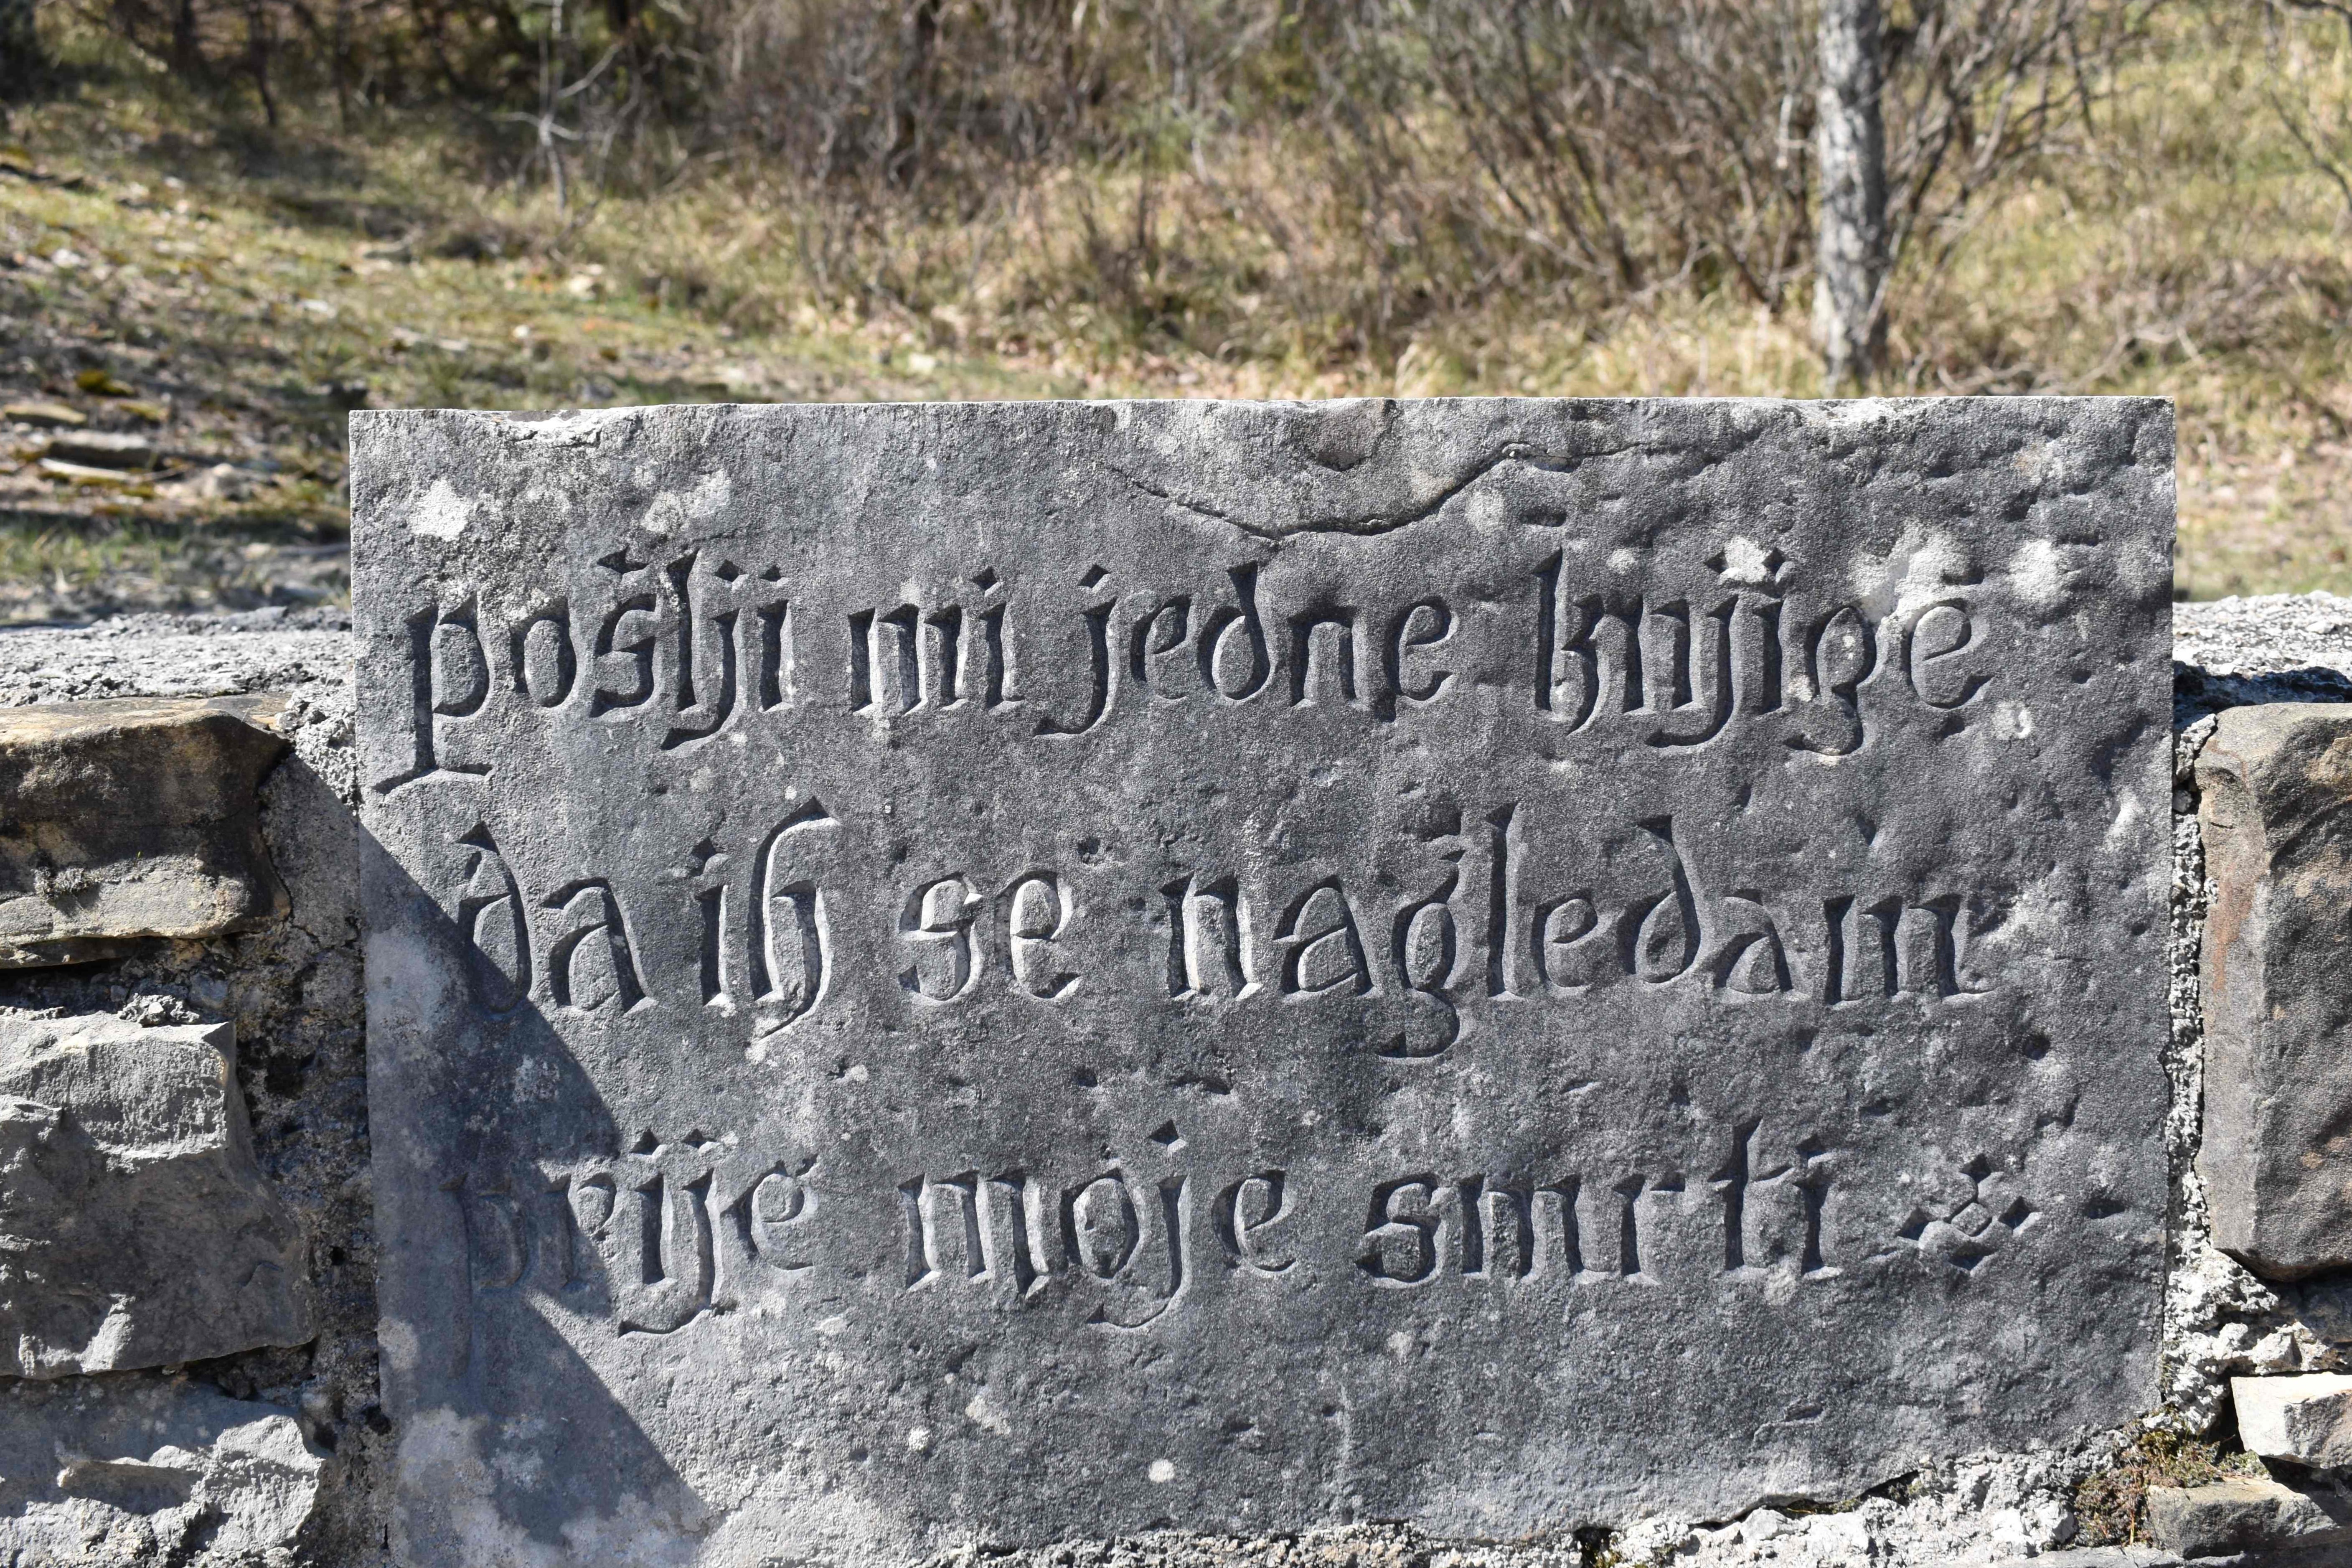 pošlji mi jedne knjige
da ih se nagledam
prije moje smrti